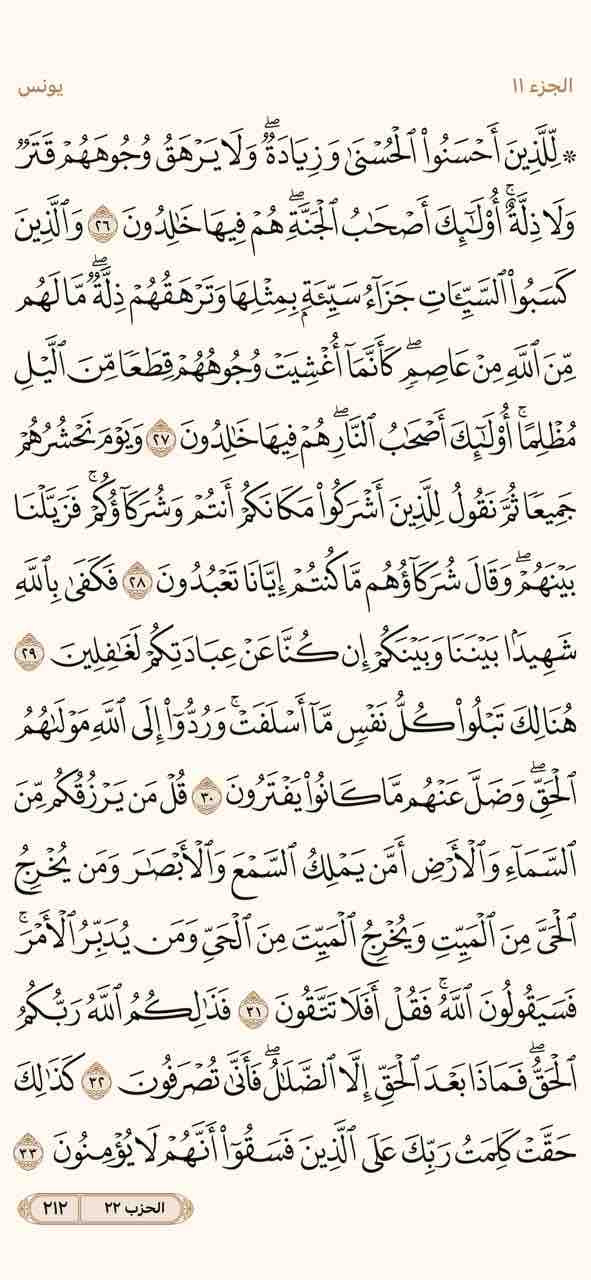 الجزء ١١
يونس
۞ لِّلَّذِينَ أَحْسَنُوا۟ ٱلْحُسْنَىٰ وَزِيَادَةٌۖ وَلَا يَرْهَقُ وُجُوهَهُمْ قَتَرٌ
وَلَا ذِلَّةٌۚ أُو۟لَٰٓئِكَ أَصْحَٰبُ ٱلْجَنَّةِۖ هُمْ فِيهَا خَٰلِدُونَ ٢٦ وَٱلَّذِينَ
كَسَبُوا۟ ٱلسَّيِّـَٔاتِ جَزَآءُ سَيِّئَةٍۭ بِمِثْلِهَا وَتَرْهَقُهُمْ ذِلَّةٌۖ مَّا لَهُم
مِّنَ ٱللَّهِ مِنْ عَاصِمٍۖ كَأَنَّمَآ أُغْشِيَتْ وُجُوهُهُمْ قِطَعًا مِّنَ ٱلَّيْلِ
مُظْلِمًاۚ أُو۟لَٰٓئِكَ أَصْحَٰبُ ٱلنَّارِۖ هُمْ فِيهَا خَٰلِدُونَ ٢٧ وَيَوْمَ نَحْشُرُهُمْ
جَمِيعًا ثُمَّ نَقُولُ لِلَّذِينَ أَشْرَكُوا۟ مَكَانَكُمْ أَنتُمْ وَشُرَكَآؤُكُمْۚ فَزَيَّلْنَا
بَيْنَهُمْۖ وَقَالَ شُرَكَآؤُهُم مَّا كُنتُمْ إِيَّانَا تَعْبُدُونَ ٢٨ فَكَفَىٰ بِٱللَّهِ
شَهِيدًۢا بَيْنَنَا وَبَيْنَكُمْ إِن كُنَّا عَنْ عِبَادَتِكُمْ لَغَٰفِلِينَ ٢٩
هُنَالِكَ تَبْلُوا۟ كُلُّ نَفْسٍ مَّآ أَسْلَفَتْۚ وَرُدُّوٓا۟ إِلَى ٱللَّهِ مَوْلَىٰهُمُ
ٱلْحَقِّۖ وَضَلَّ عَنْهُم مَّا كَانُوا۟ يَفْتَرُونَ ٣٠ قُلْ مَن يَرْزُقُكُم مِّنَ
ٱلسَّمَآءِ وَٱلْأَرْضِ أَمَّن يَمْلِكُ ٱلسَّمْعَ وَٱلْأَبْصَٰرَ وَمَن يُخْرِجُ
ٱلْحَىَّ مِنَ ٱلْمَيِّتِ وَيُخْرِجُ ٱلْمَيِّتَ مِنَ ٱلْحَىِّ وَمَن يُدَبِّرُ ٱلْأَمْرَۚ
فَسَيَقُولُونَ ٱللَّهُۚ فَقُلْ أَفَلَا تَتَّقُونَ ٣١ فَذَٰلِكُمُ ٱللَّهُ رَبُّكُمُ
ٱلْحَقُّۖ فَمَاذَا بَعْدَ ٱلْحَقِّ إِلَّا ٱلضَّلَٰلُۖ فَأَنَّىٰ تُصْرَفُونَ ٣٢ كَذَٰلِكَ
حَقَّتْ كَلِمَتُ رَبِّكَ عَلَى ٱلَّذِينَ فَسَقُوٓا۟ أَنَّهُمْ لَا يُؤْمِنُونَ ٣٣
الحزب ٢٢
٢١٢